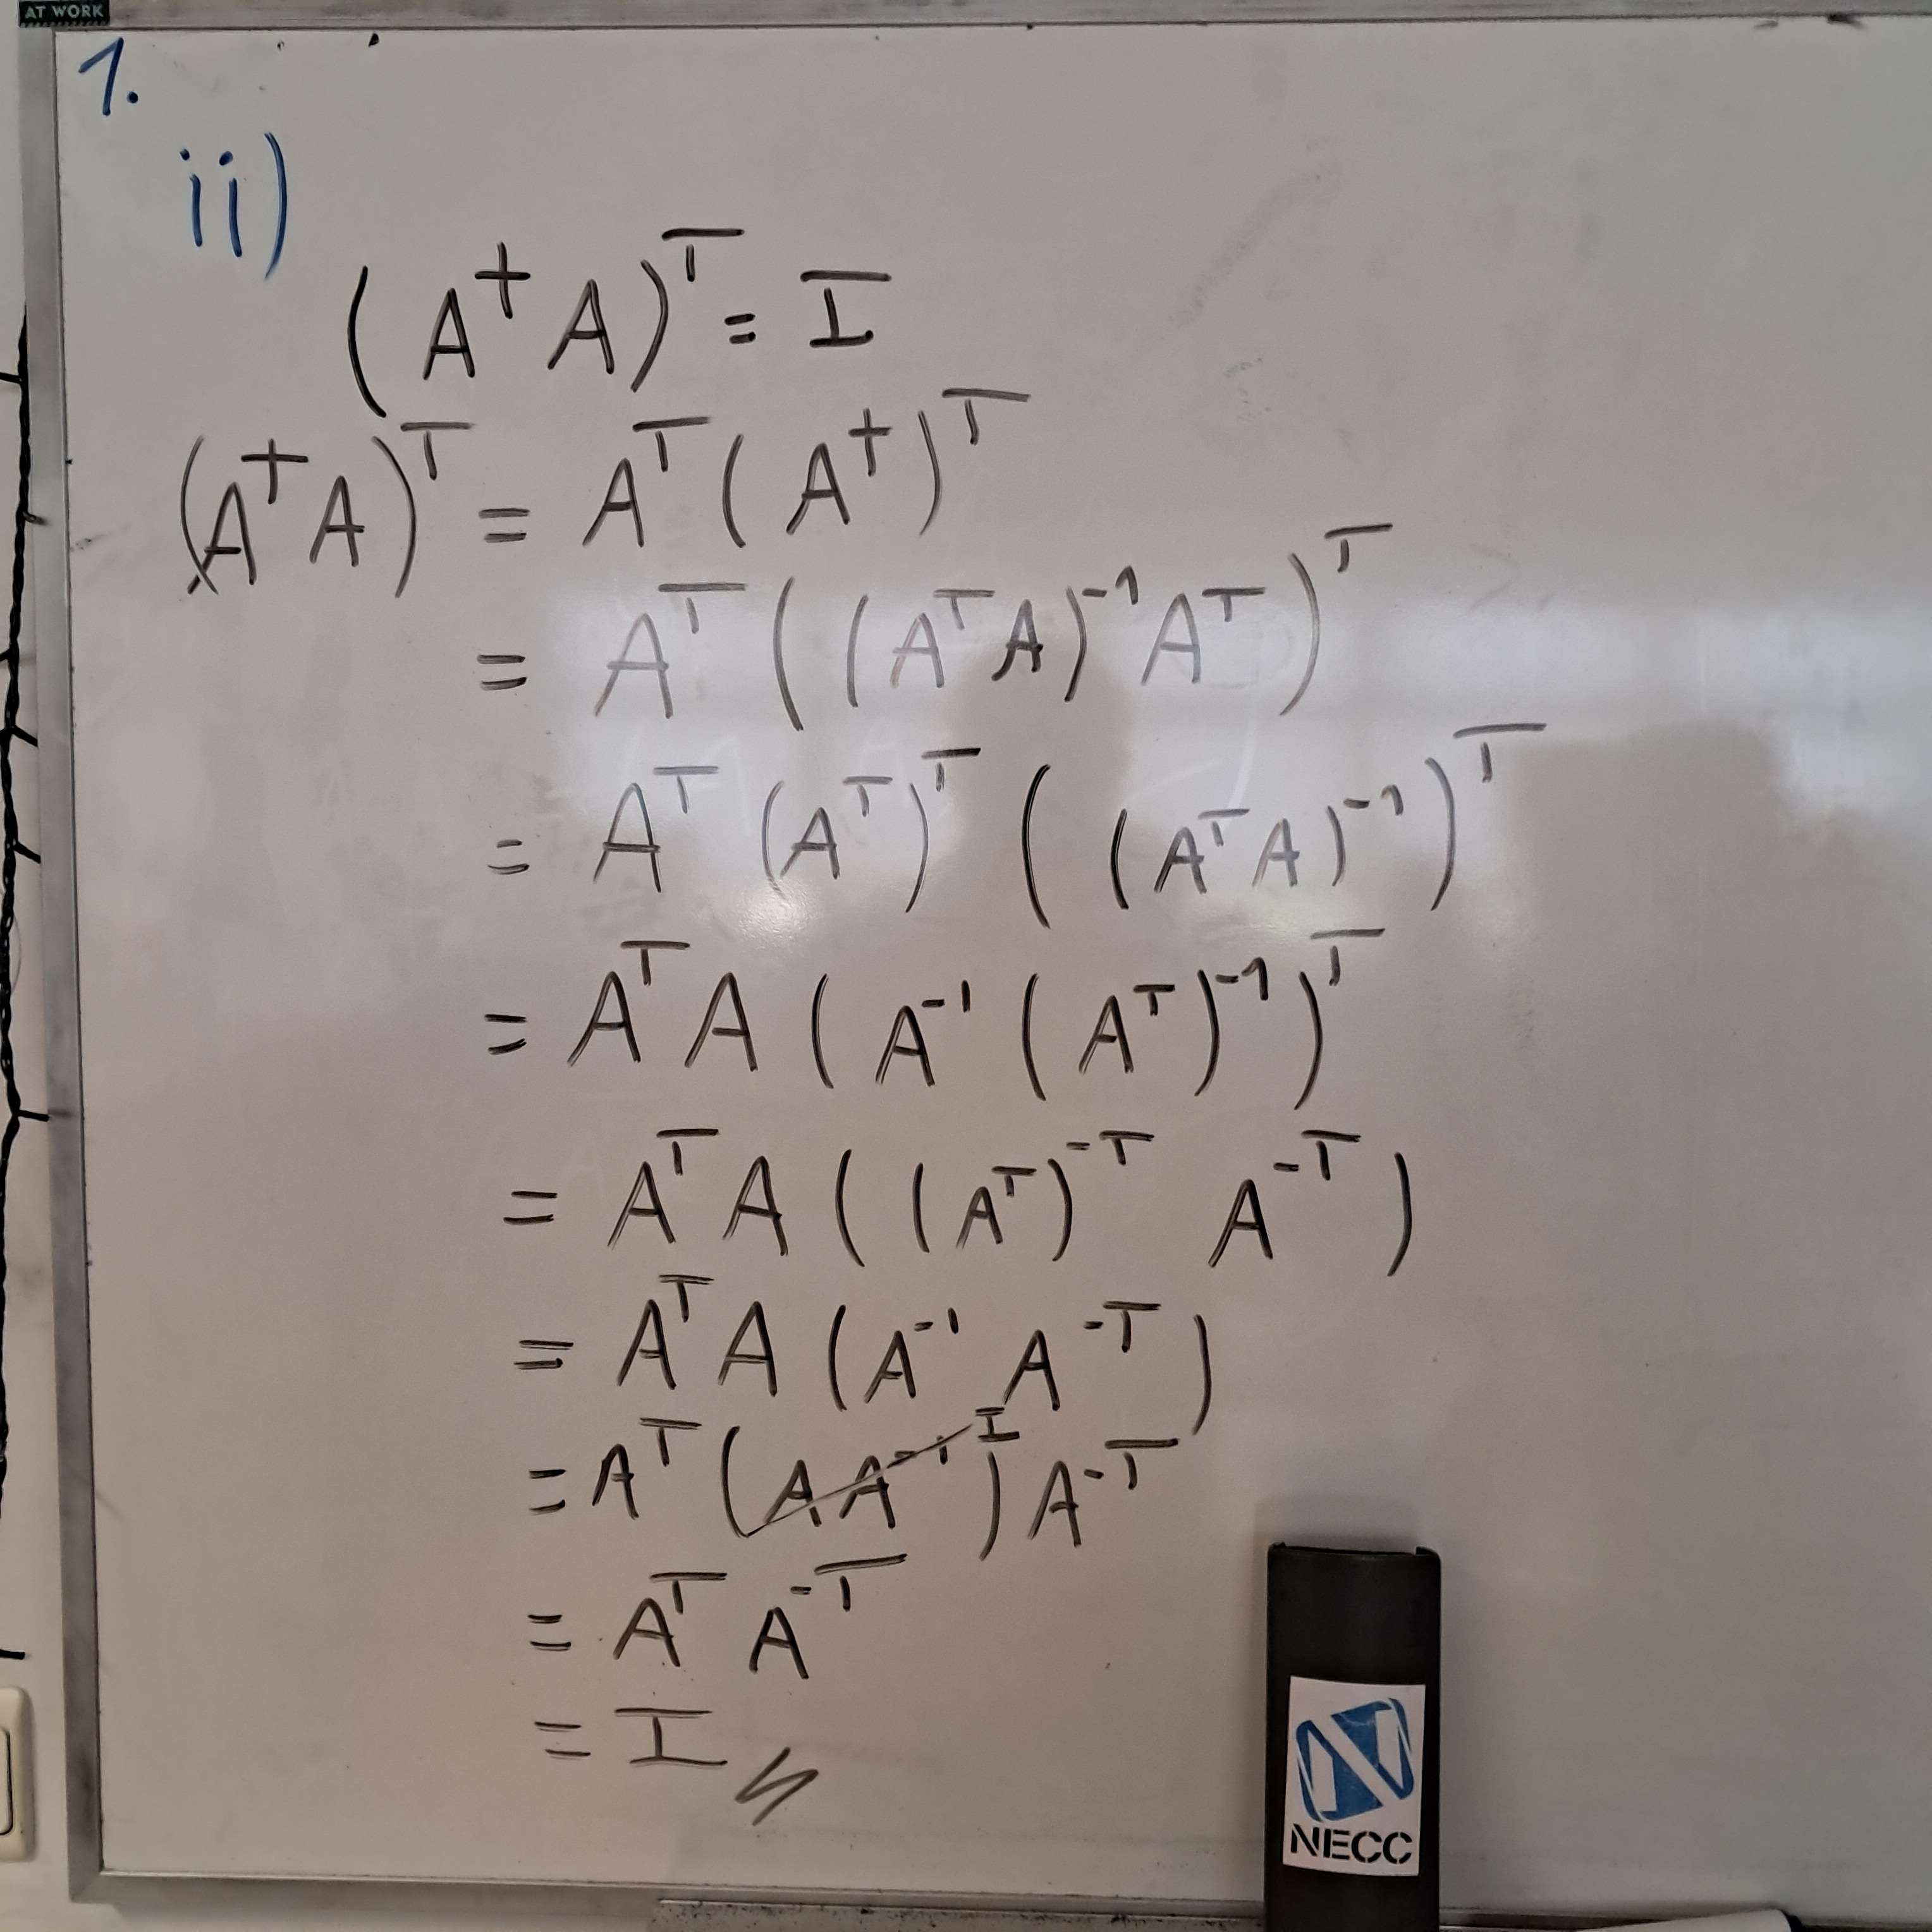 AT WORK
1.
ii)
(A⁺A)ᵀ = I
(A⁺A)ᵀ = Aᵀ(A⁺)ᵀ
= Aᵀ((AᵀA)⁻¹Aᵀ)ᵀ
= Aᵀ(Aᵀ)ᵀ((AᵀA)⁻¹)ᵀ
= AᵀA(A⁻¹(Aᵀ)⁻¹)ᵀ
= AᵀA((Aᵀ)⁻ᵀ A⁻ᵀ)
= AᵀA(A⁻¹A⁻ᵀ)
= Aᵀ(AA⁻¹)ᴵA⁻ᵀ
= AᵀA⁻ᵀ
= I
NECC